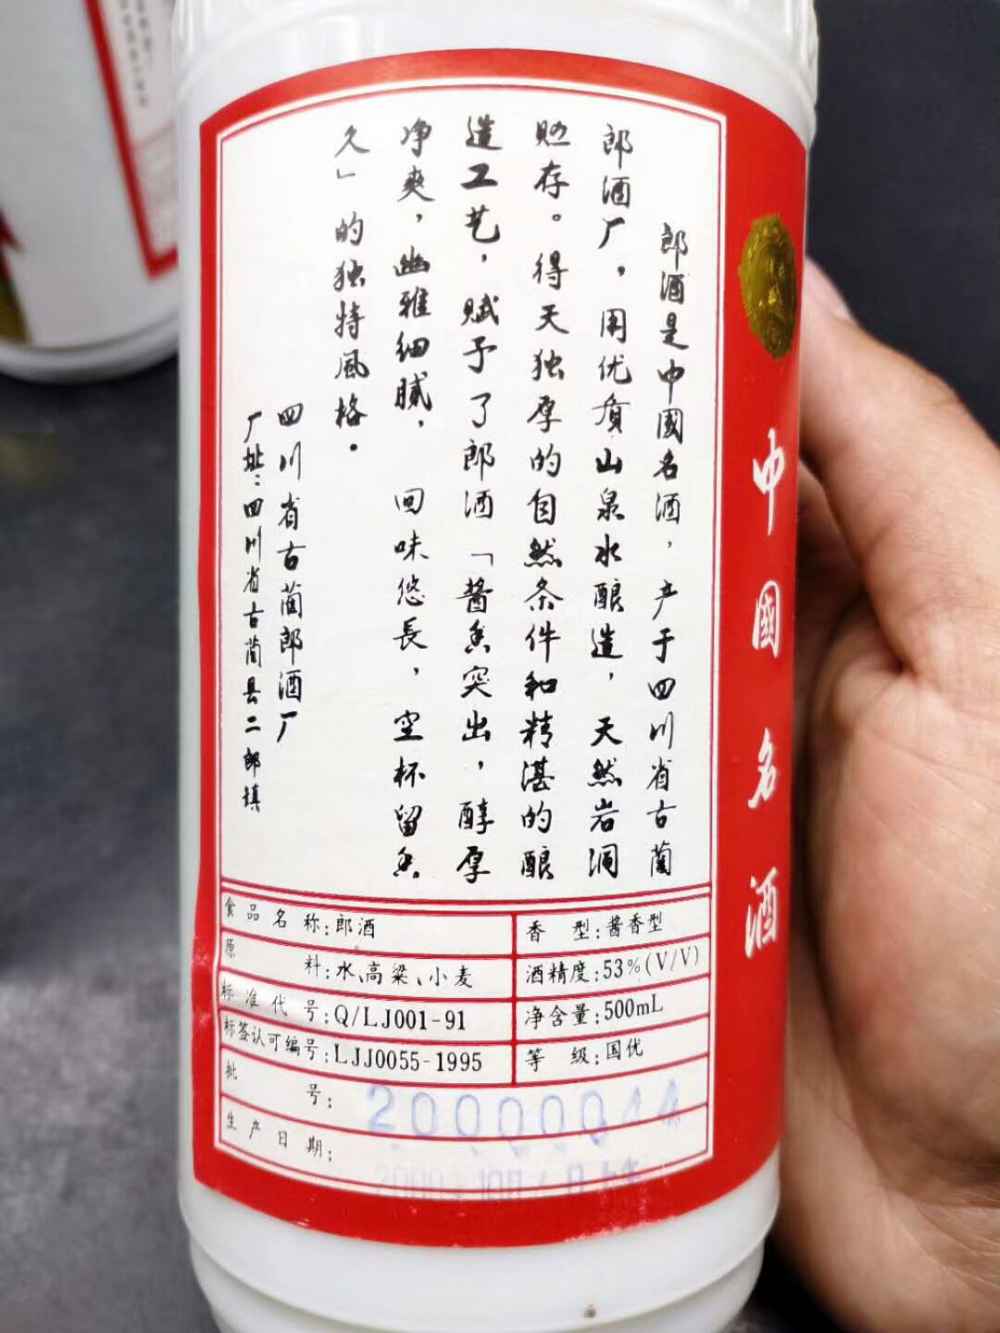 郎酒是中國名酒，产于四川省古蔺
郎酒厂，用优质山泉水酿造，天然岩洞
贮存。得天独厚的自然条件和精湛的酿
造工艺，赋予了郎酒「酱香突出，醇厚
净爽，幽雅细腻，回味悠長，空杯留香
久」的独特風格.
四川省古蔺郎酒厂
厂址:四川省古蔺县二郎镇
中國名酒
食品名称:郎酒
香型:酱香型
原料:水、高粱、小麦
酒精度:53%(V/V)
标准代号:Q/LJ001-91
净含量:500mL
标签认可编号:LJJ0055-1995
等级:国优
批号: 20000044
生产日期: